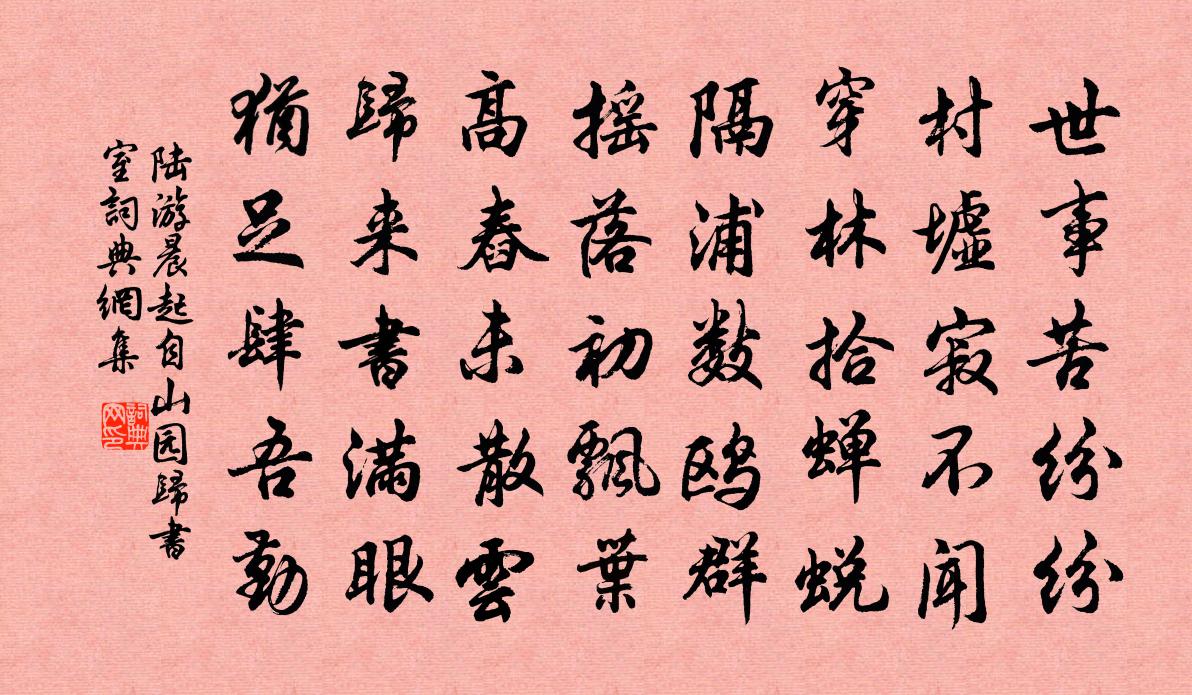 世事苦纷纷
村墟寂不闻
穿林拾蝉蜕
隔浦数鸥群
摇落初飘葉
高舂未散雲
歸来書满眼
猶足肆吾勤
陆游晨起自山园歸書
室詞典網集
詞典網印